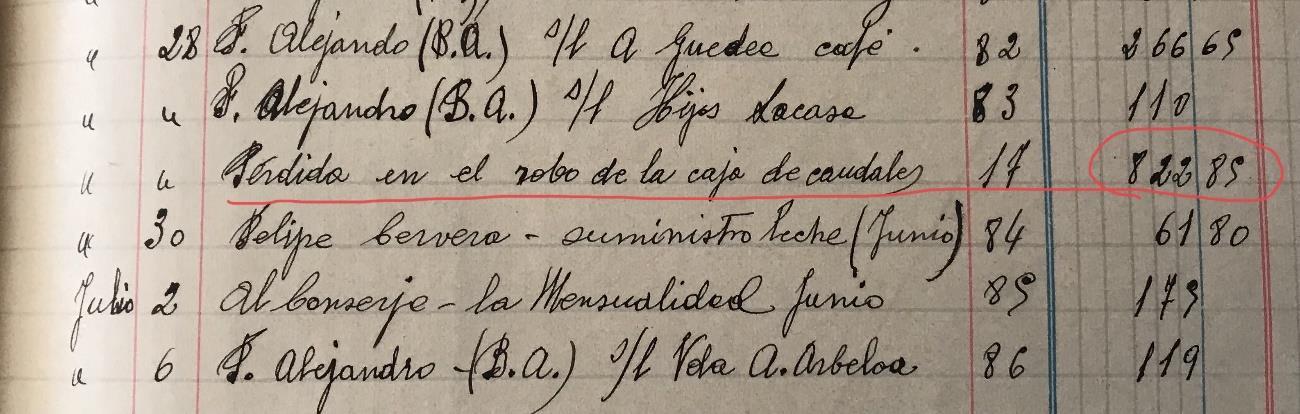 " 28 F. Alejando (B.A.) s/l A Guedee café. 82 266 65
" " F. Alejandro (B.A.) s/l Hijos Lacasa 83 110
" " Pérdida en el robo de la caja de caudales 17 822 85
" 30 Felipe Cervera - suministro leche (Junio) 84 61 80
Julio 2 Al Conserje - la Mensualidad Junio 85 175
" 6 F. Alejandro - (B.A.) s/l Vda A. Arbeloa 86 119